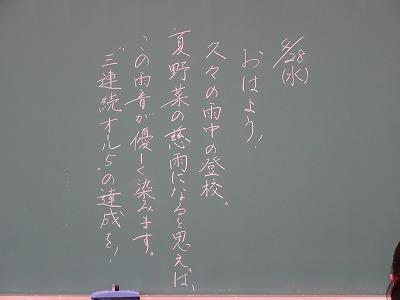 6/28
(水)
おはよう!
久々の雨中の登校。
夏野菜の慈雨になると思えば、
この雨音が優しく染みます。
"三連続オール5"の達成を!